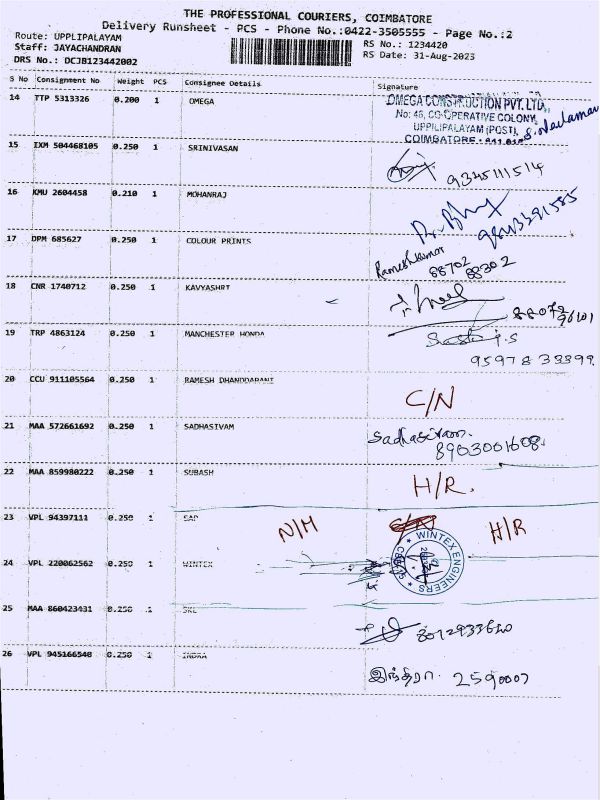 THE PROFESSIONAL COURIERS, COIMBATORE
Delivery Runsheet - PCS - Phone No.:0422-3505555 - Page No.:2
Route: UPPLIPALAYAM
Staff: JAYACHANDRAN
DRS No.: DCJB123442002
RS No.: 1234420
RS Date: 31-Aug-2023
S No Consignment No Weight PCS Consignee Details Signature
14 TTP 5313326 0.200 1 OMEGA
OMEGA CONSTRUCTION PVT. LTD.,
No: 46, CO-OPERATIVE COLONY,
UPPILIPALAYAM (POST),
COIMBATORE
15 IXM 504468105 0.250 1 SRINIVASAN
9345111514
16 KMU 2604458 0.210 1 MOHANRAJ
17 DPM 685627 0.250 1 COLOUR PRINTS
Rameshkumar
88702
88302
18 CNR 1740712 0.250 1 KAVYASHRI
88072
96101
19 TRP 4863124 0.250 1 MANCHESTER HONDA
95978 38399
20 CCU 911105564 0.250 1 RAMESH DHANDDAPANI
C/N
21 MAA 572661692 0.250 1 SADHASIVAM
Sadhasivam.
8903001608.
22 MAA 859980222 0.250 1 SUBASH
H/R.
23 VPL 94397111 0.250 1 SAP
N/H C/N H/R
24 VPL 220062562 0.250 1 WINTEX
WINTEX ENGINEERS
25 MAA 860423431 0.250 1 SKL
26 VPL 945166548 0.250 1 INDRA
இந்திரா. 2590007